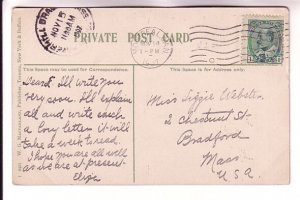 PRIVATE POST CARD.
This Space is for Message.
This Space is for Address only.
Dear I will write you
very soon. I'll explain
all and write such
a long letter it will
take a week to read.
I hope you are all well
as we are at present
Eliza
Miss Lizzie Webster
2 Chestnut St.
Bradford
Mass.
U.S.A.
NOV 15